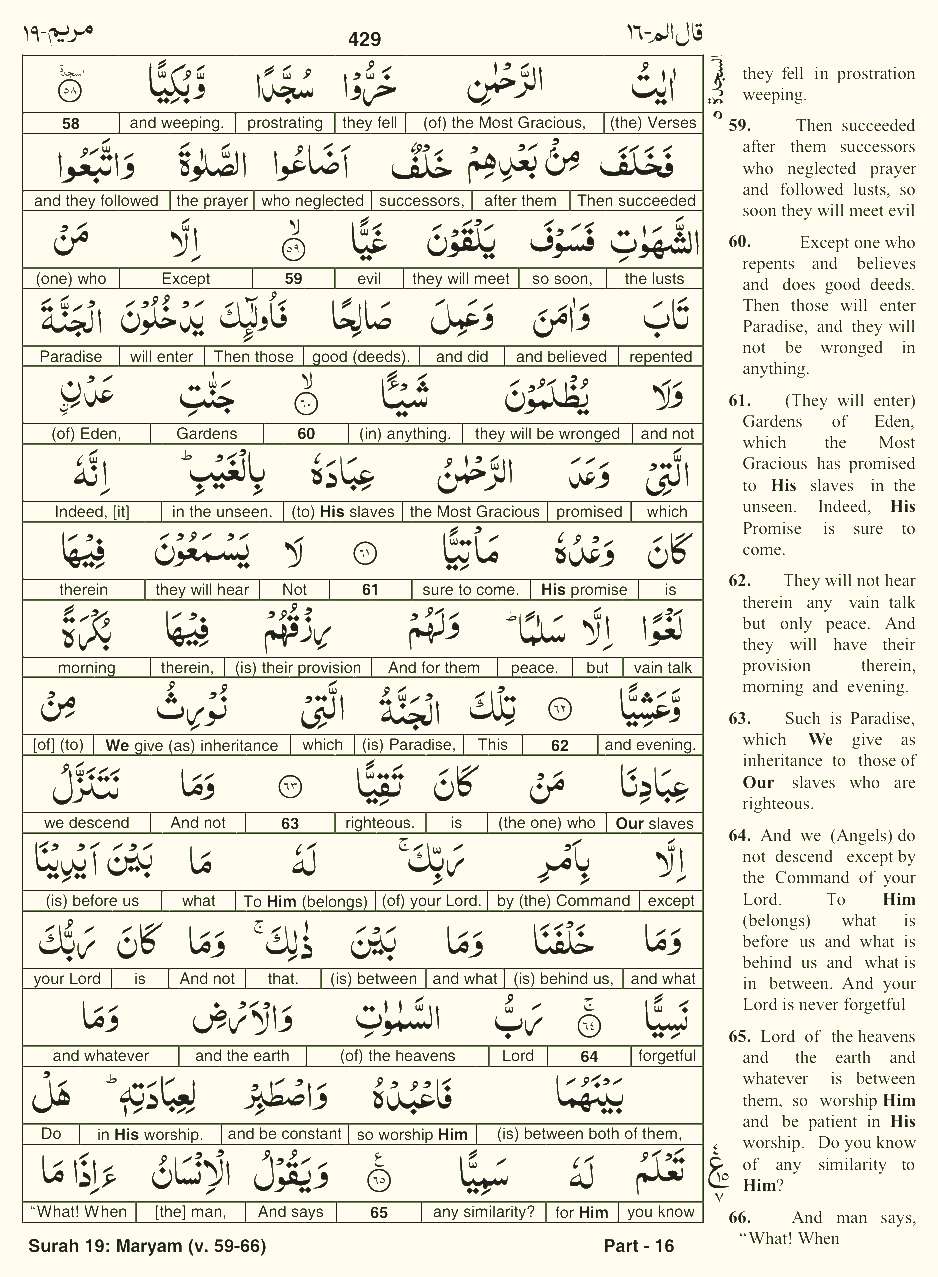 مريم-١٩
429
قال الم-١٦
اٰيٰتُ الرَّحْمٰنِ خَرُّوْا سُجَّدًا وَّبُكِيًّا ۝٥٨
(the) Verses | (of) the Most Gracious, | they fell | prostrating | and weeping. | 58
فَخَلَفَ مِنْۢ بَعْدِهِمْ خَلْفٌ اَضَاعُوا الصَّلٰوةَ وَاتَّبَعُوا
Then succeeded | after them | successors, | who neglected | the prayer | and they followed
الشَّهَوٰتِ فَسَوْفَ يَلْقَوْنَ غَيًّا ۝٥٩ اِلَّا مَنْ
the lusts | so soon, | they will meet | evil | 59 | Except | (one) who
تَابَ وَاٰمَنَ وَعَمِلَ صَالِحًا فَاُولٰٓئِكَ يَدْخُلُوْنَ الْجَنَّةَ
repented | and believed | and did | good (deeds). | Then those | will enter | Paradise
وَلَا يُظْلَمُوْنَ شَيْـًٔا ۝٦٠ جَنّٰتِ عَدْنِ
and not | they will be wronged | (in) anything. | 60 | Gardens | (of) Eden,
الَّتِيْ وَعَدَ الرَّحْمٰنُ عِبَادَهٗ بِالْغَيْبِ ؕ اِنَّهٗ
which | promised | the Most Gracious | (to) His slaves | in the unseen. | Indeed, [it]
كَانَ وَعْدُهٗ مَاْتِيًّا ۝٦١ لَا يَسْمَعُوْنَ فِيْهَا
is | His promise | sure to come. | 61 | Not | they will hear | therein
لَغْوًا اِلَّا سَلٰمًا ؕ وَلَهُمْ رِزْقُهُمْ فِيْهَا بُكْرَةً
vain talk | but | peace. | And for them | (is) their provision | therein, | morning
وَّعَشِيًّا ۝٦٢ تِلْكَ الْجَنَّةُ الَّتِيْ نُوْرِثُ مِنْ
and evening. | 62 | This | (is) Paradise, | which | We give (as) inheritance | [of] (to)
عِبَادِنَا مَنْ كَانَ تَقِيًّا ۝٦٣ وَمَا نَتَنَزَّلُ
Our slaves | (the one) who | is | righteous. | 63 | And not | we descend
اِلَّا بِاَمْرِ رَبِّكَ ۚ لَهٗ مَا بَيْنَ اَيْدِيْنَا
except | by (the) Command | (of) your Lord. | To Him (belongs) | what | (is) before us
وَمَا خَلْفَنَا وَمَا بَيْنَ ذٰلِكَ ۚ وَمَا كَانَ رَبُّكَ
and what | (is) behind us, | and what | (is) between | that. | And not | is | your Lord
نَسِيًّا ۝٦٤ رَبُّ السَّمٰوٰتِ وَالْاَرْضِ وَمَا
forgetful | 64 | Lord | (of) the heavens | and the earth | and whatever
بَيْنَهُمَا فَاعْبُدْهُ وَاصْطَبِرْ لِعِبَادَتِهٖ ؕ هَلْ
(is) between both of them, | so worship Him | and be constant | in His worship. | Do
تَعْلَمُ لَهٗ سَمِيًّا ۝٦٥ وَيَقُوْلُ الْاِنْسَانُ ءَاِذَا مَا
you know | for Him | any similarity? | 65 | And says | [the] man, | “What! When
they fell in prostration
weeping.
59. Then succeeded
after them successors
who neglected prayer
and followed lusts, so
soon they will meet evil
60. Except one who
repents and believes
and does good deeds.
Then those will enter
Paradise, and they will
not be wronged in
anything.
61. (They will enter)
Gardens of Eden,
which the Most
Gracious has promised
to His slaves in the
unseen. Indeed, His
Promise is sure to
come.
62. They will not hear
therein any vain talk
but only peace. And
they will have their
provision therein,
morning and evening.
63. Such is Paradise,
which We give as
inheritance to those of
Our slaves who are
righteous.
64. And we (Angels) do
not descend except by
the Command of your
Lord. To Him
(belongs) what is
before us and what is
behind us and what is
in between. And your
Lord is never forgetful
65. Lord of the heavens
and the earth and
whatever is between
them, so worship Him
and be patient in His
worship. Do you know
of any similarity to
Him?
66. And man says,
“What! When
Surah 19: Maryam (v. 59-66)
Part - 16